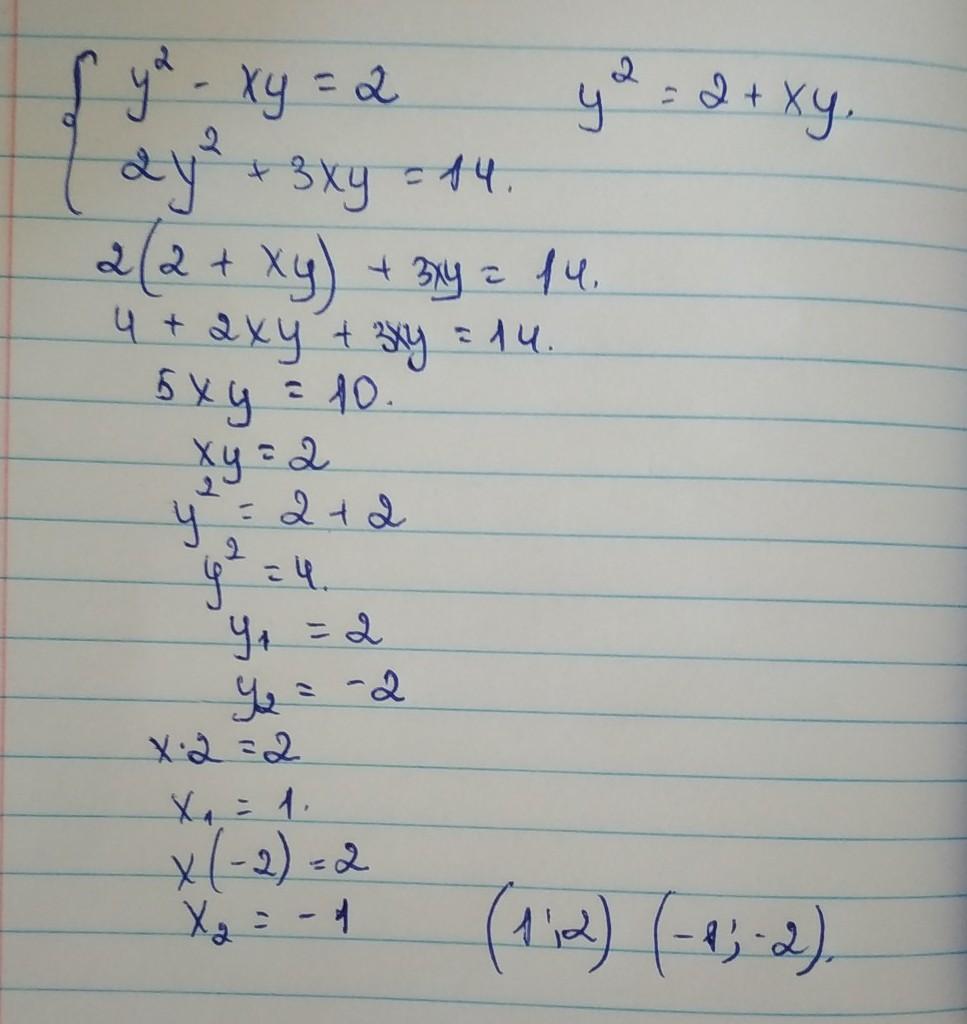 y² - xy = 2    y² = 2 + xy.
2y² + 3xy = 14.
2(2 + xy) + 3xy = 14.
4 + 2xy + 3xy = 14.
5xy = 10.
xy = 2
y² = 2 + 2
y² = 4.
y₁ = 2
y₂ = -2
x·2 = 2
x₁ = 1.
x(-2) = 2
x₂ = -1    (1;2) (-1;-2).